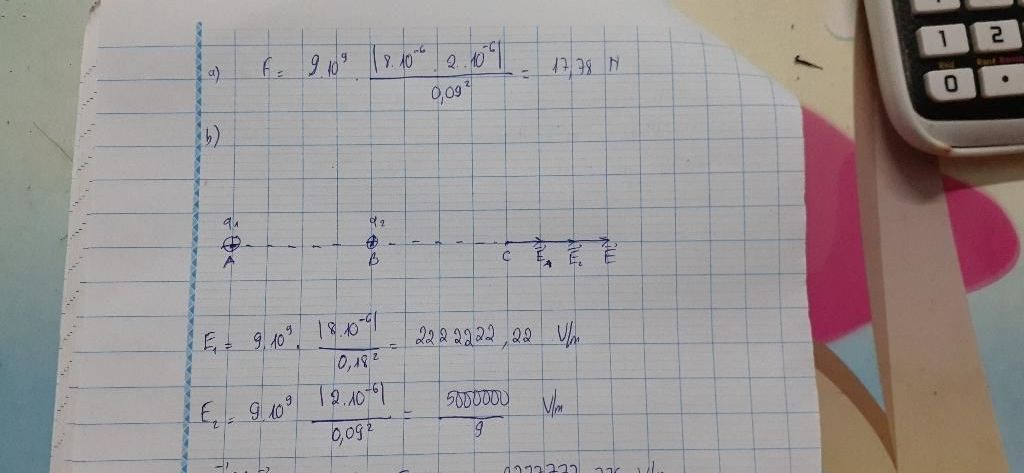 a) F = 9.10⁹ . |8.10⁻⁶ . 2.10⁻⁶| / 0,09² = 17,78 N
b)
q₁ q₂
A B C E⃗₁ E⃗₂ E⃗
E₁ = 9.10⁹ . |8.10⁻⁶| / 0,18² = 2222222,22 V/m
E₂ = 9.10⁹ |2.10⁻⁶| / 0,09² = 5000000 / 9 V/m
1 2
0 .